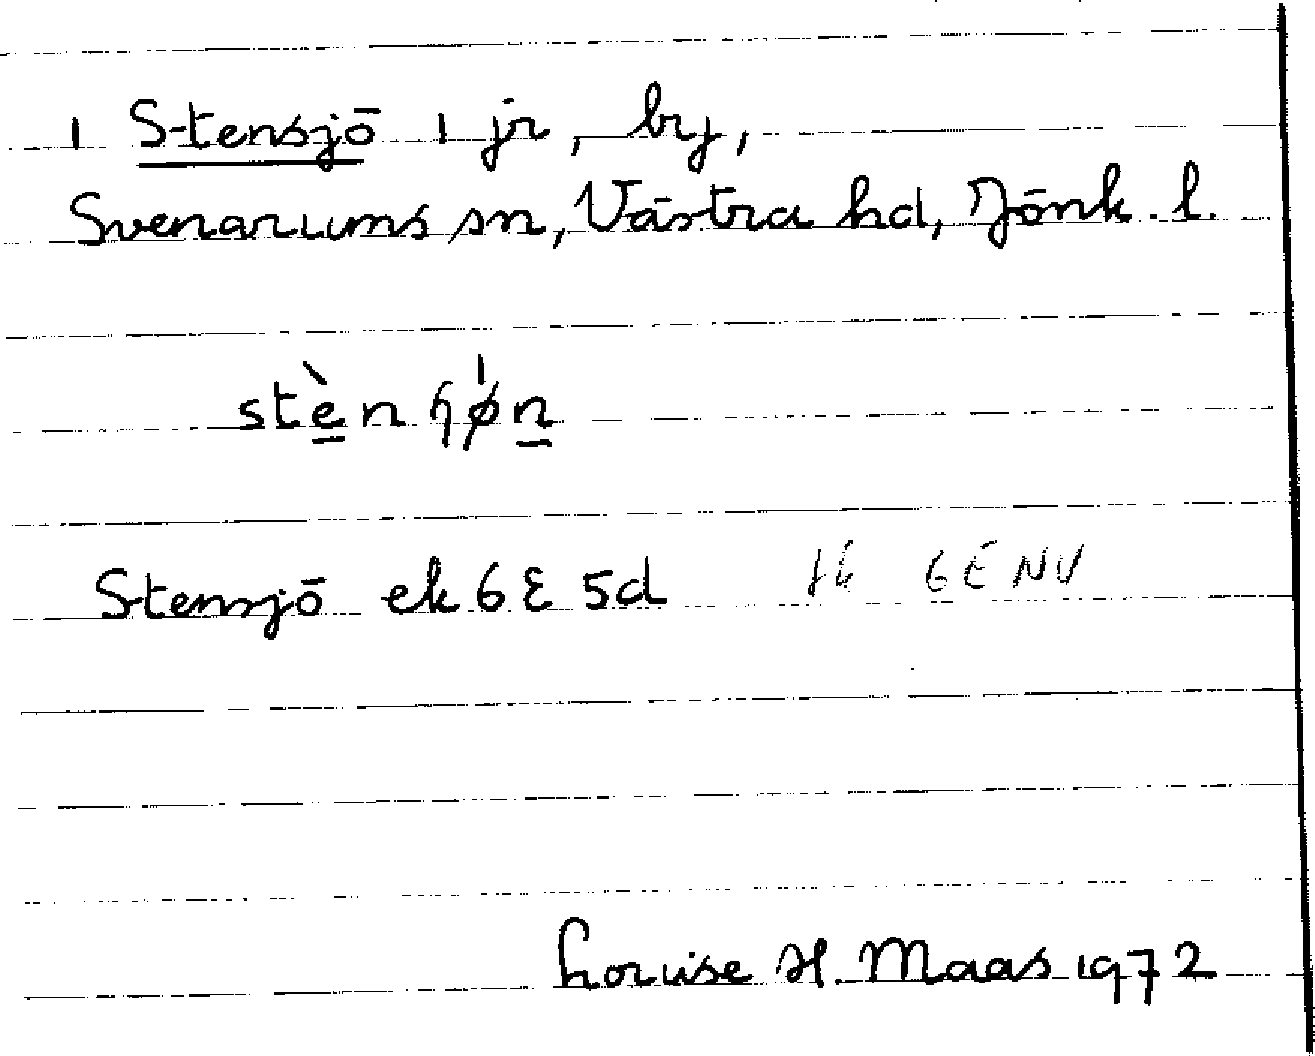 1 Stensjö 1 jr, by,
Svenarums sn, Västra hd, Jönk. l.
stèn ɧøn
Stensjö ek 6E 5d tk 6E NV
Louise H. Maas 1972